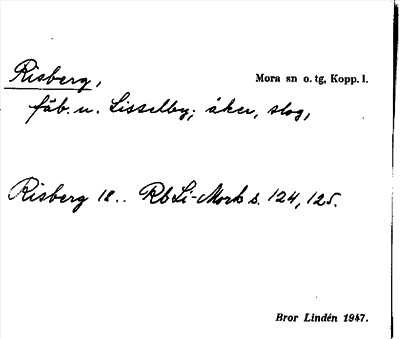 Risberg, Mora sn o. tg, Kopp. l.
fäb. u. Lisselby; åker, slog,
Risberg 18.. RbLi-Mork s. 124, 125.
Bror Lindén 1947.